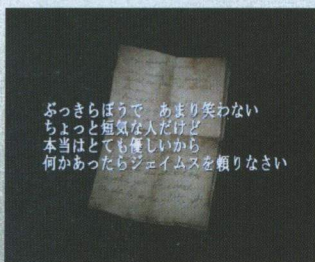 ぶっきらぼうで　あまり笑わない
ちょっと短気な人だけど
本当はとても優しいから
何かあったらジェイムスを頼りなさい